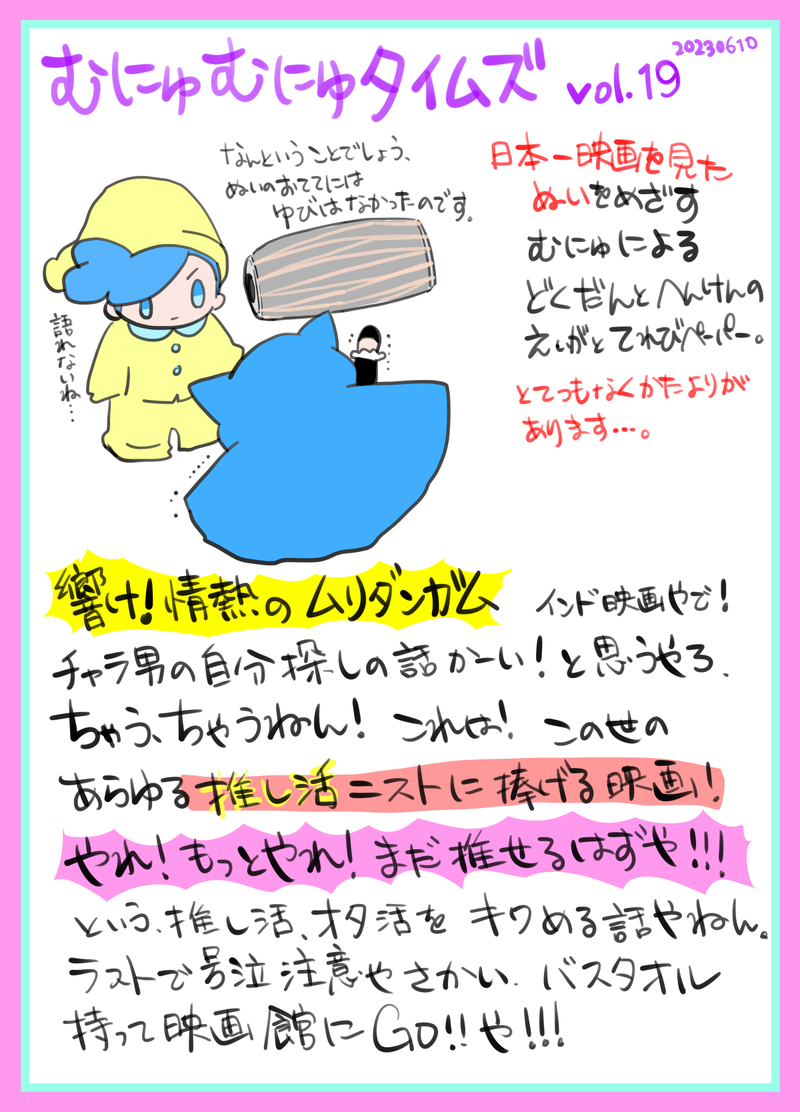 むにゅむにゅタイムズ vol.19
20230610
なんということでしょう、
ぬいのおててには
ゆびはなかったのです。
日本一映画を見た
ぬいをめざす
むにゅによる
どくだんとへんけんの
えいがとてれびペーパー。
とてつもなくかたよりが
あります…。
語れないね…
響け!情熱のムリダンガム インド映画やで!
チャラ男の自分探しの話かーい!と思うやろ、
ちゃう、ちゃうねん! これは! このせの
あらゆる推し活ニストに捧げる映画!
やれ!もっとやれ!まだ推せるはずや!!!
という、推し活、オタ活をキワめる話やねん。
ラストで号泣注意やさかい、バスタオル
持って映画館にGO!!や!!!